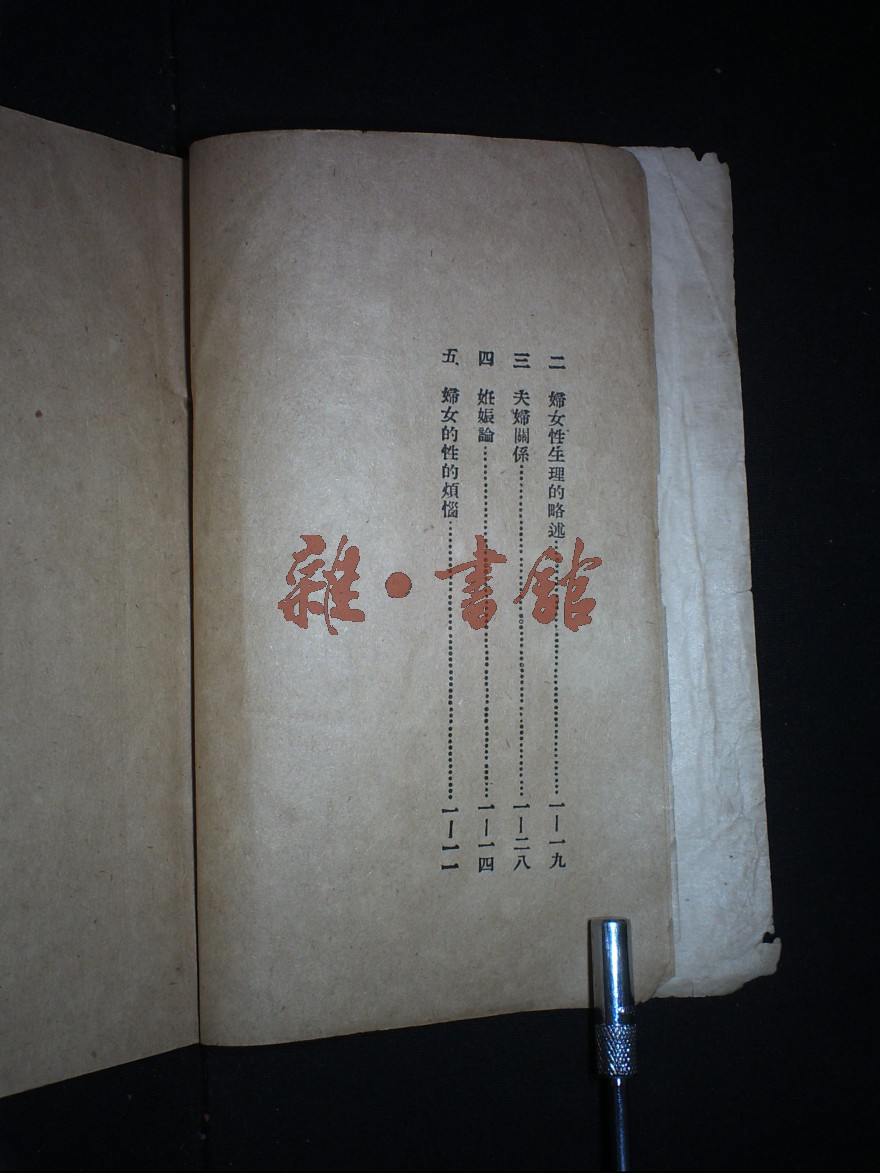 二 婦女性生理的略述……………………一—一九
三 夫婦關係……………………一—二八
四 姙娠論……………………一—一四
五、婦女的性的煩惱……………………一—一一
雜•書館